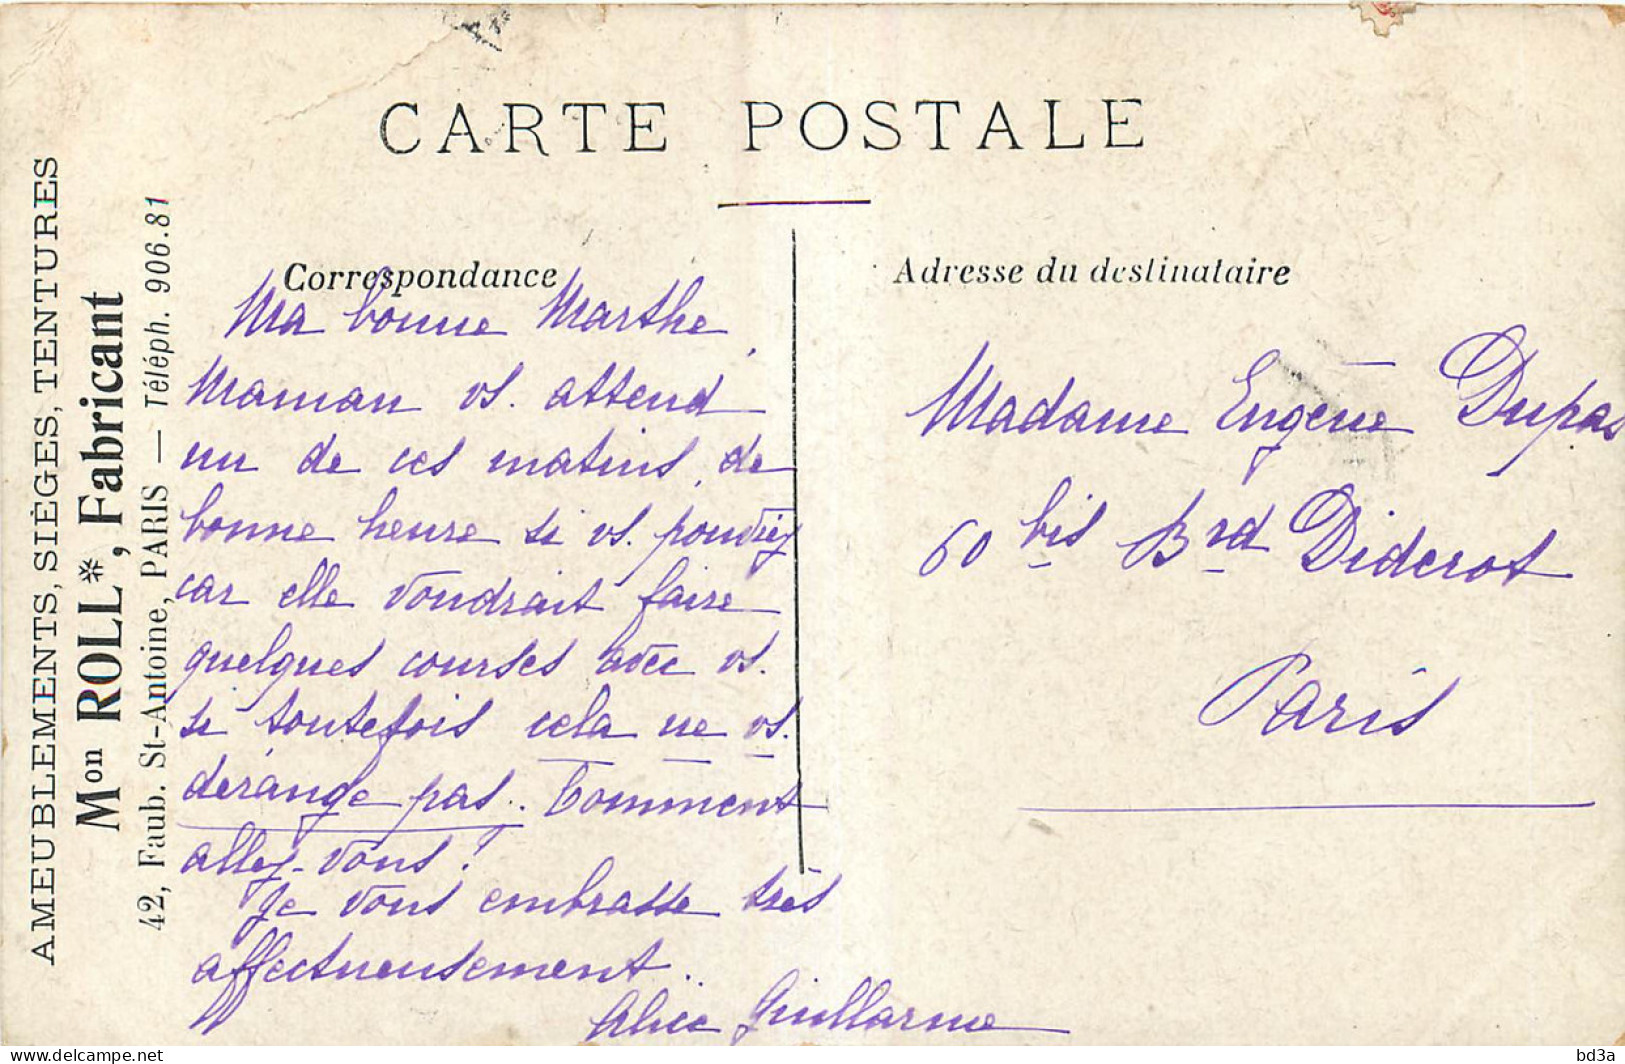 CARTE POSTALE
AMEUBLEMENTS, SIÈGES, TENTURES
Mon ROLL*, Fabricant
42, Faub. St-Antoine, PARIS — Téléph. 906.81
Correspondance
Ma bonne Marthe,
Maman vs. attend
un de ces matins, de
bonne heure si vs. pouviez
car elle voudrait faire
quelques courses avec vs.
si toutefois cela ne vs.
dérange pas. Comment
allez-vous?
Je vous embrasse très
affectueusement.
Alice Guillarme
Adresse du destinataire
Madame Eugène Dupas
60 bis Brd Diderot
Paris
bd3a